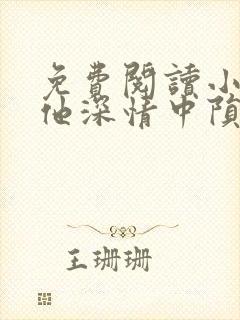 免費閱讀小
他深情中隕
王珊珊